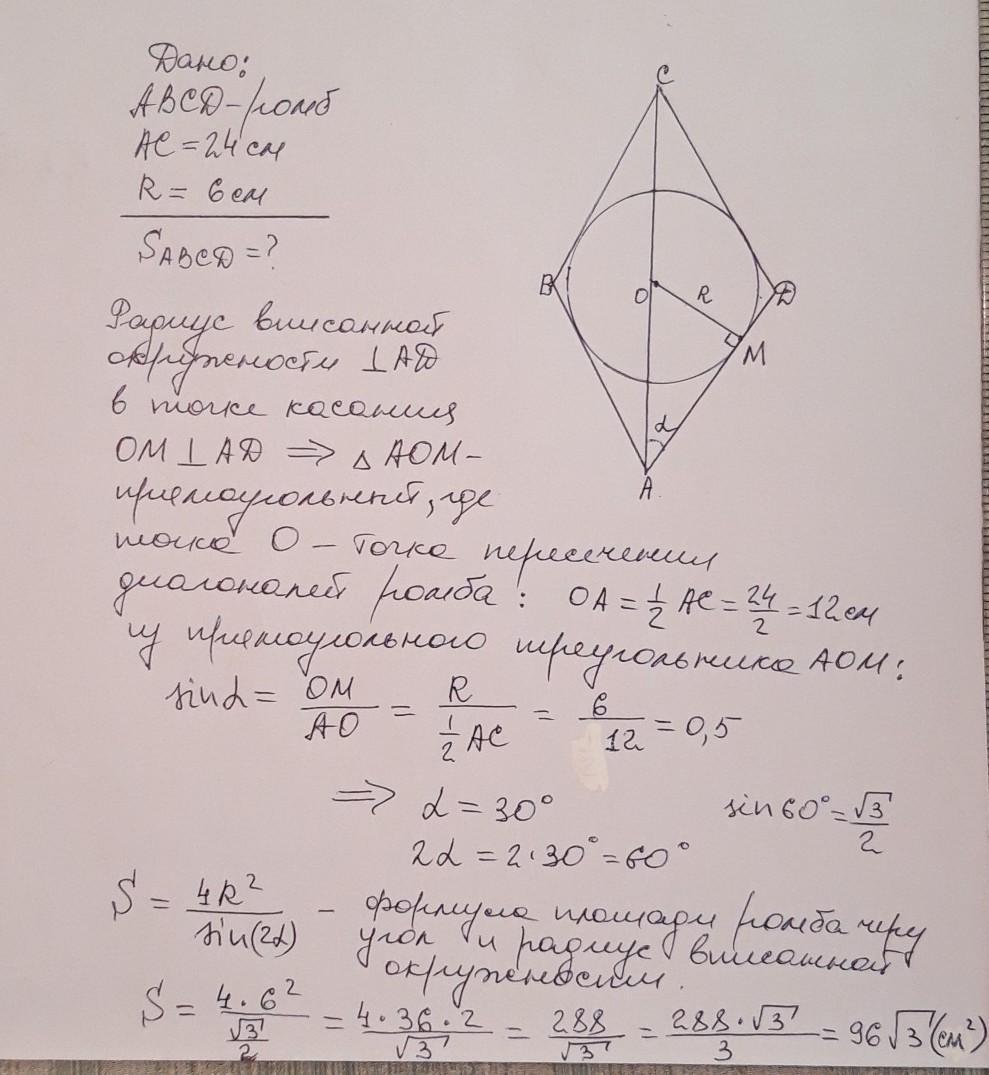 Дано:
ABCD - ромб
AC = 24 см
R = 6 см
S_ABCD = ?
C
B
O
R
D
M
α
A
Радиус вписанной
окружности ⊥ AD
в точке касания
OM ⊥ AD ⇒ △ AOM -
прямоугольный, где
точка O - точка пересечения
диагоналей ромба: OA = 1/2 AC = 24/2 = 12 см
из прямоугольного треугольника AOM:
sin α = OM/AO = R/(1/2 AC) = 6/12 = 0,5
⇒ α = 30° sin 60° = √3/2
2α = 2·30° = 60°
S = 4R²/sin(2α) - формула площади ромба через
угол и радиус вписанной
окружности.
S = 4·6²/(√3/2) = 4·36·2/√3 = 288/√3 = 288·√3/3 = 96√3 (см²)